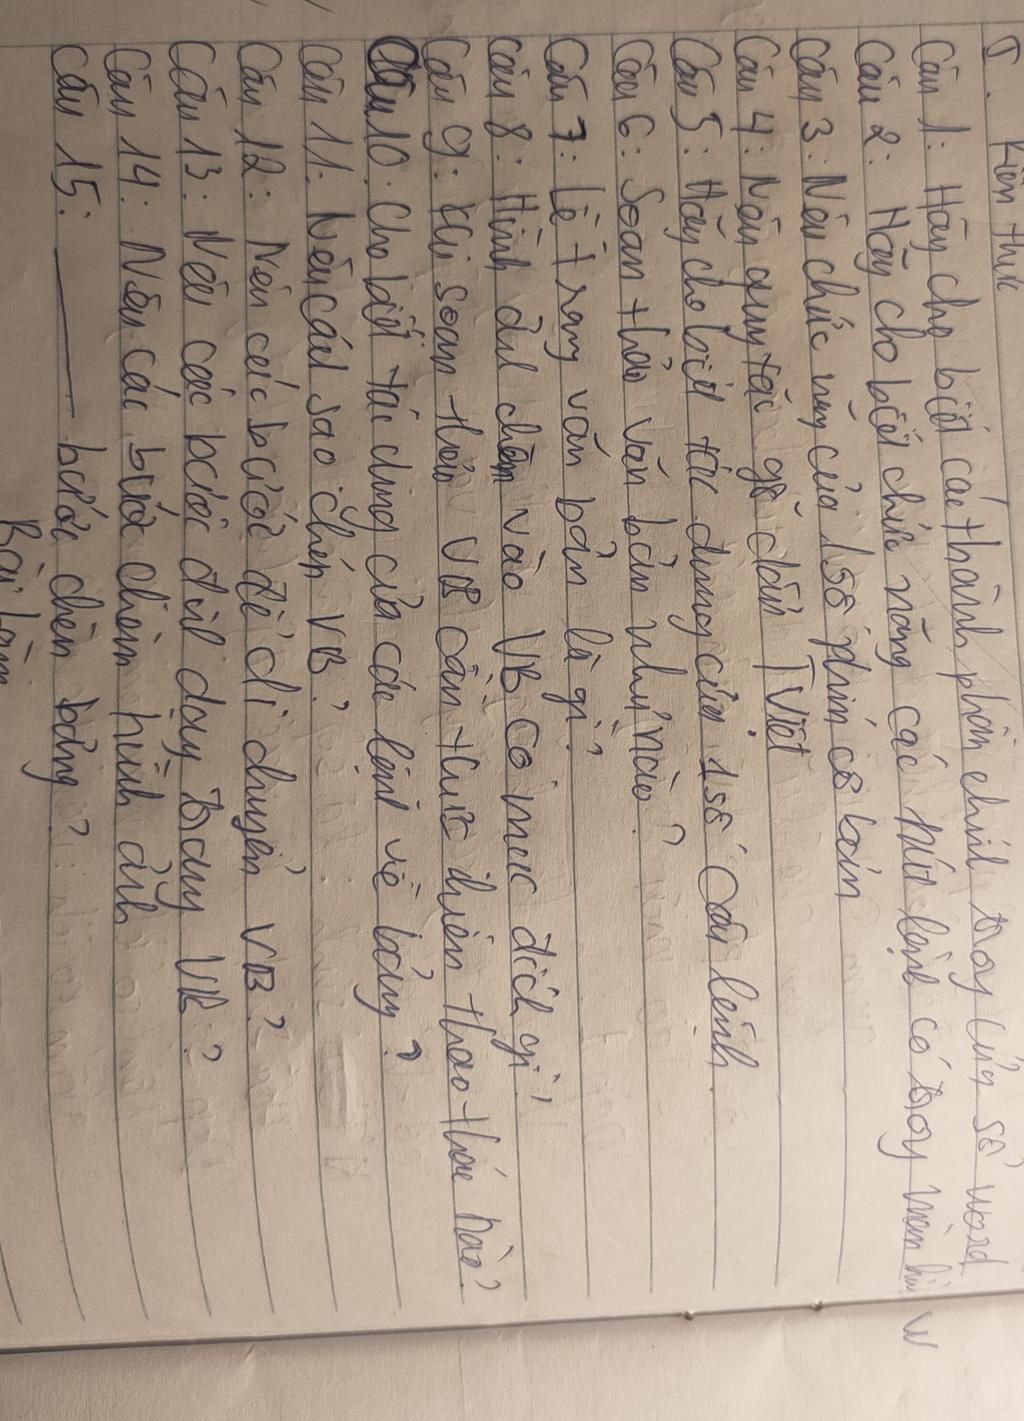 I. Kiến thức
Câu 1: Hãy cho biết các thành phần chính trong cửa sổ word
Câu 2: Hãy cho biết chức năng các nút lệnh có trong màn hình W
Câu 3: Nêu chức năng của 1 số phím cơ bản
Câu 4: Nêu quy tắc gõ dấu T Việt
Câu 5: Hãy cho biết tác dụng của 1 số câu lệnh.
Câu 6: Soạn thảo văn bản như nào?
Câu 7: Lề trang văn bản là gì?
Câu 8: Hình ảnh chèn vào VB có mục đích gì?
Câu 9: Khi soạn thảo VB cần thực hiện thao thác nào?
Câu 10: Cho biết tác dụng của các lệnh vẽ bảng?
Câu 11: Nêu cách sao chép VB?
Câu 12: Nêu các bước để di chuyển VB?
Câu 13: Nêu các bước định dạng trang VB?
Câu 14: Nêu các bước chèn hình ảnh
Câu 15: ______ bước chèn bảng?
Bài làm